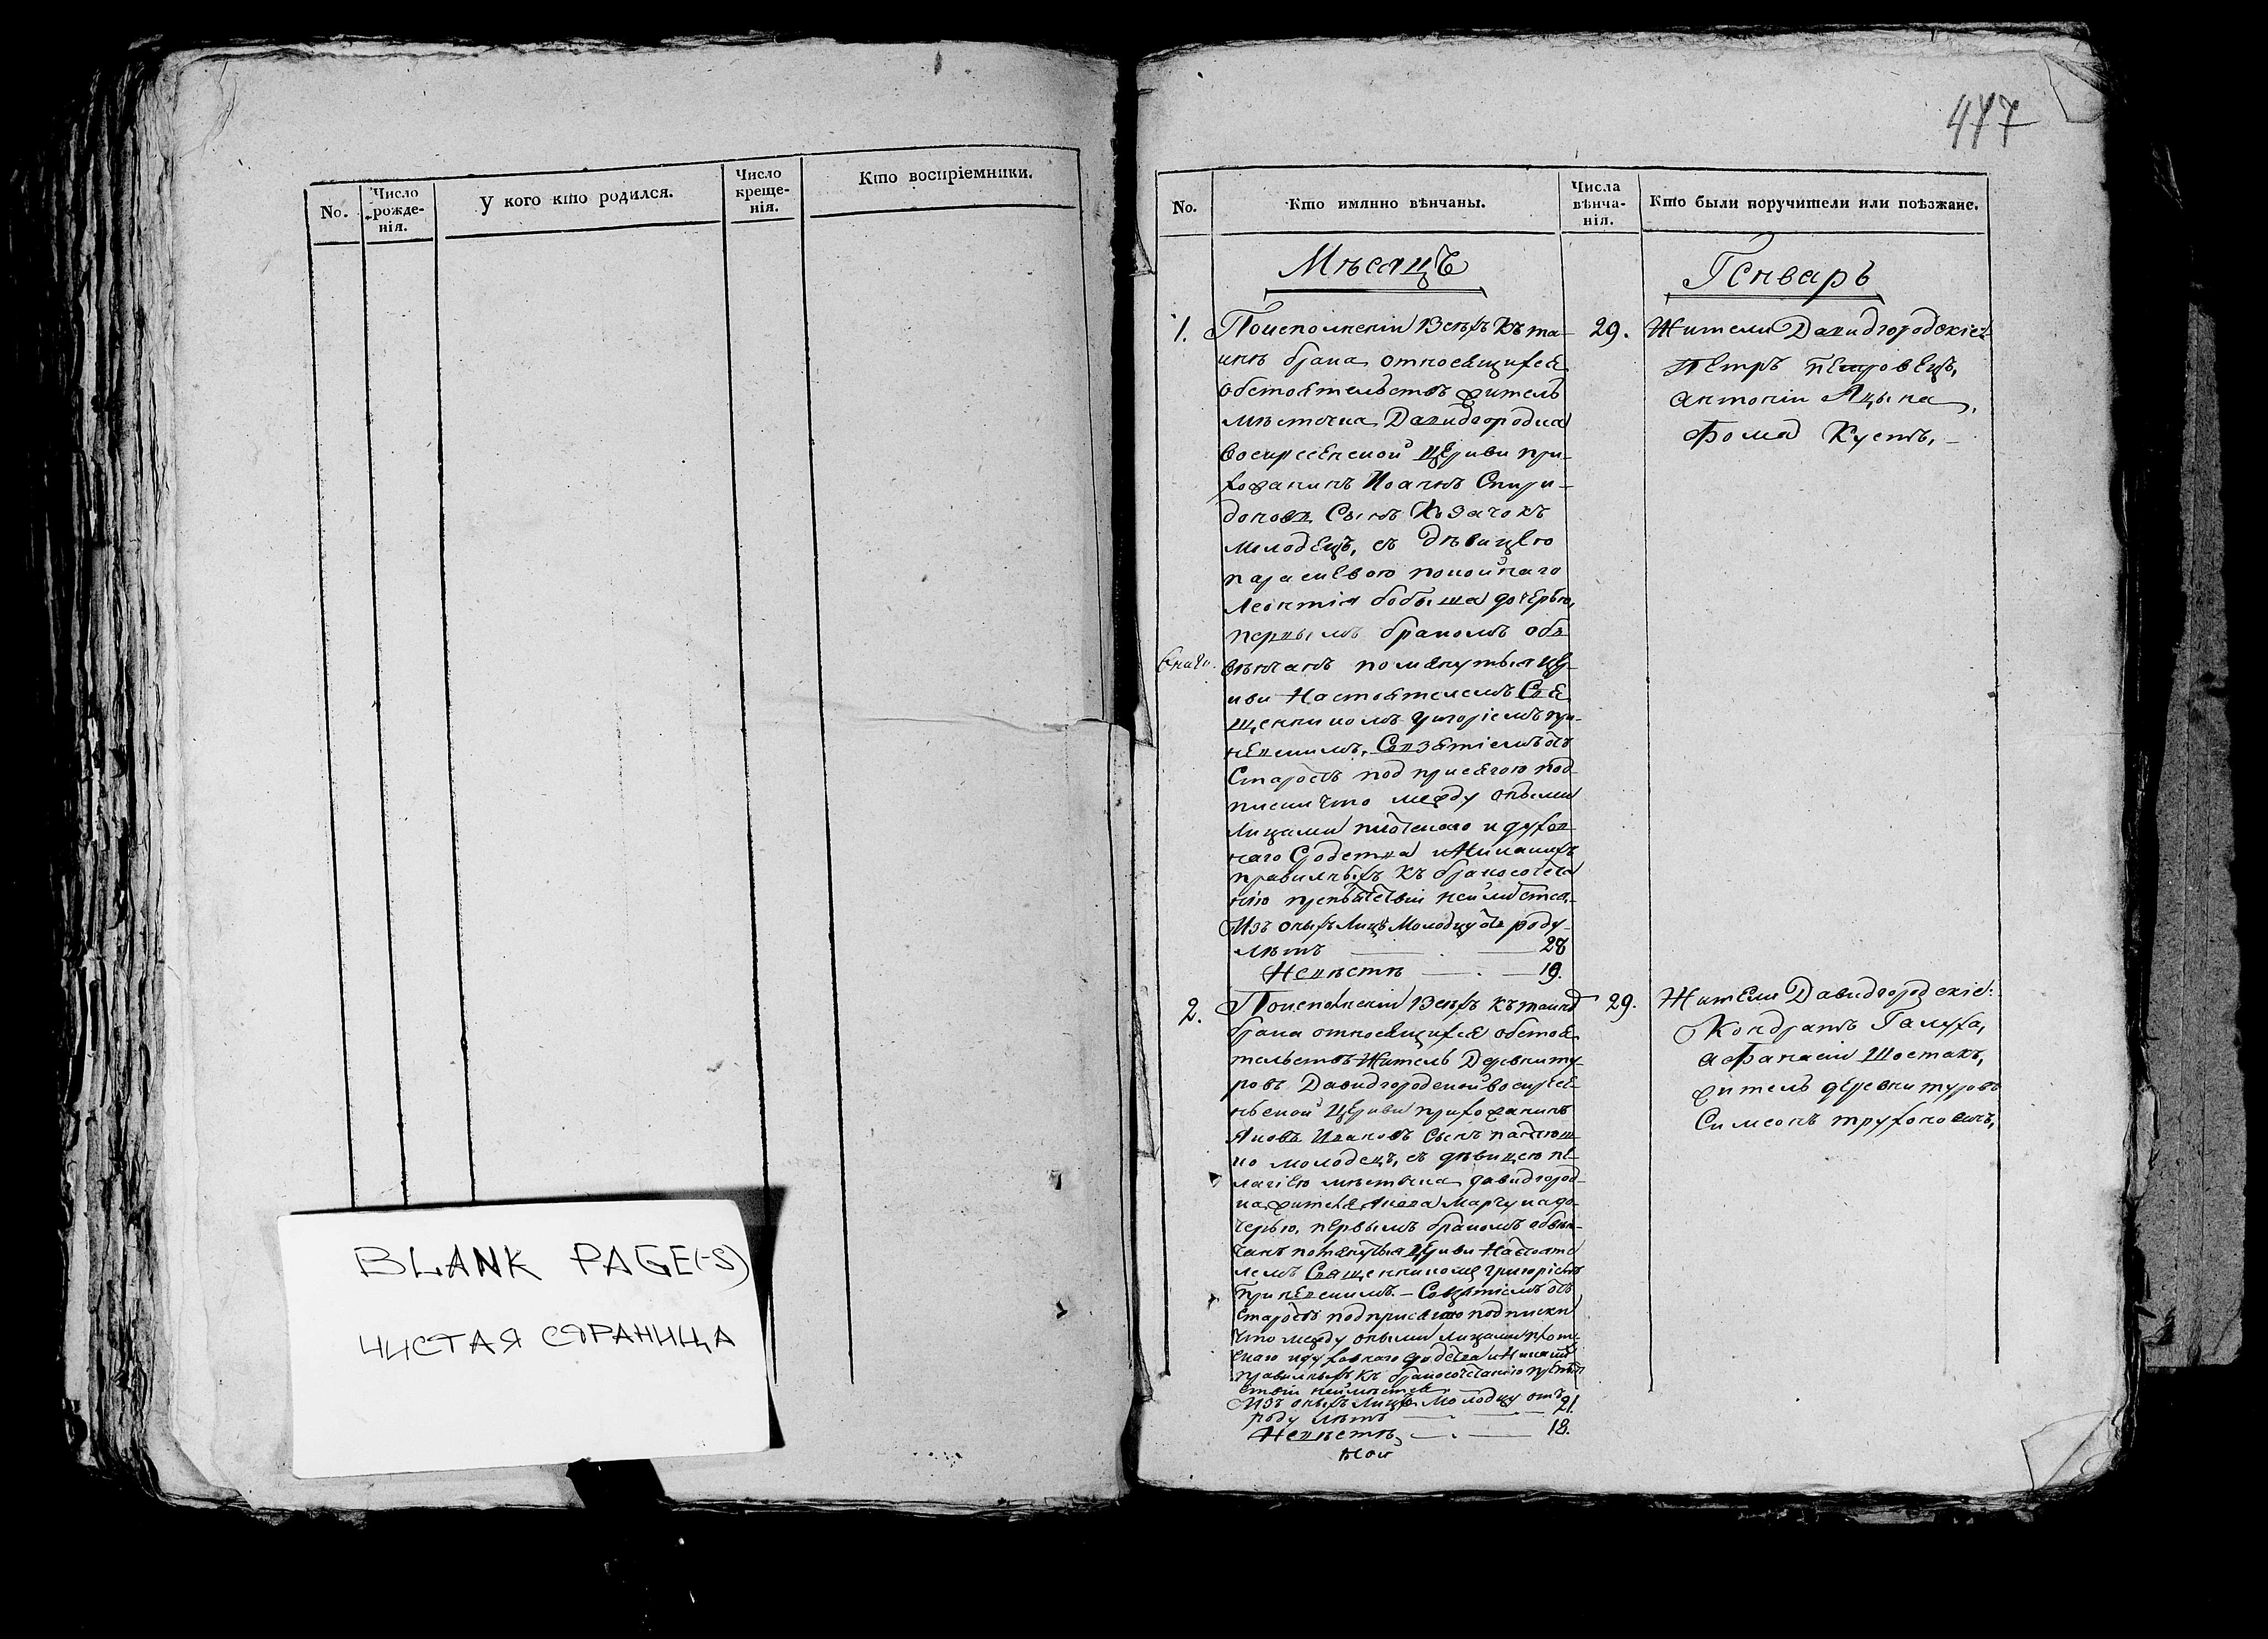 No.
Число рожде-нія.
У кого кто родился.
Число креще-нія.
Кто воспріемники.
BLANK PAGE(-S)
ЧИСТАЯ СТРАНИЦА
447
No.
Кто имянно вѣнчаны.
Числа вѣнча-нія.
Кто были поручители или поѣзжане.
Мѣсяцъ
Генварь
1.
Поисполненіи Всѣхъ Къ та-
инѣ брака относящихся
обстоятельствъ житель
мѣстечка Давидгородка
воскресенской церкви при-
хожанинъ Иоаннъ Спири-
доновъ Сынъ Козачокъ
молодецъ, съ дѣвицею
параскевою покойнаго
Леонтія бобыша дочерью,
первымъ бракомъ об
вѣнчанъ помянутыя цер-
кви Настоятелемъ Свя
щенникомъ григоріемъ при-
невскимъ, Совзятіемъ отъ
Старостъ под присягою под-
писки что между оными
Лицами плотскаго и духов
наго Сродства и Никакихъ
правильныхъ къ бракосочета
нію препятствіи неимѣется.
Изъ оныхъ Лицъ Молодцу отъ роду
лѣтъ 28
Невѣстѣ 19.
29.
Жители Давидгородскіе:
Петръ петровецъ,
антоніи Яцына,
Фома Кустъ,
2.
Поисполненіи Всѣхъ къ таинѣ
брака относящихся обстоя
тельствъ Житель Деревни ту-
ровъ Давидгородской воскресе-
нской Церкви прихожанинъ
Яковъ Ивановъ Сынъ
ко молодецъ, съ дѣвицею пе-
лагіею мѣстечка давидгород
ка жителя Якова Марчука до-
черью, первымъ бракомъ обвѣн-
чанъ помянутыя Церкви Настояте
лемъ Священникомъ григоріемъ
приневскимъ. Совзятіемъ отъ
Старостъ подприсягою подписки
что между оными лицами плот
скаго идуховнаго сродства и Никакихъ
правильныхъ къ бракосочетанію препят
ствіи неимѣется
Изъ оныхъ Лицъ Молодцу отъ
роду лѣтъ 21.
Невѣстѣ 18.
29.
Жители Давидгородскіе:
Кондратъ Галуха,
афанасіи Шостакъ,
житель деревни туровъ
Симеонъ труханович,